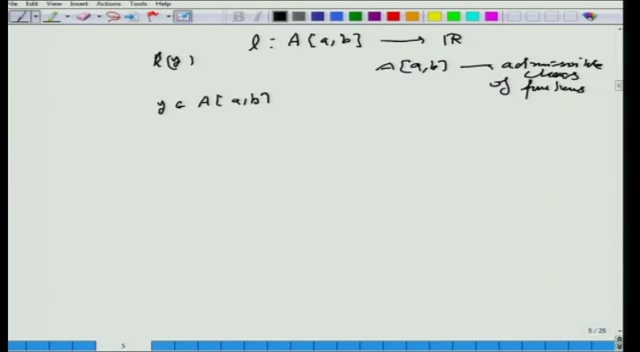 File Edit View Insert Actions Tools Help
l : A[a,b] ⟶ ℝ
l(y)
A[a,b] — admissible
class
of functions
y ∈ A[a,b]
5 / 25
5